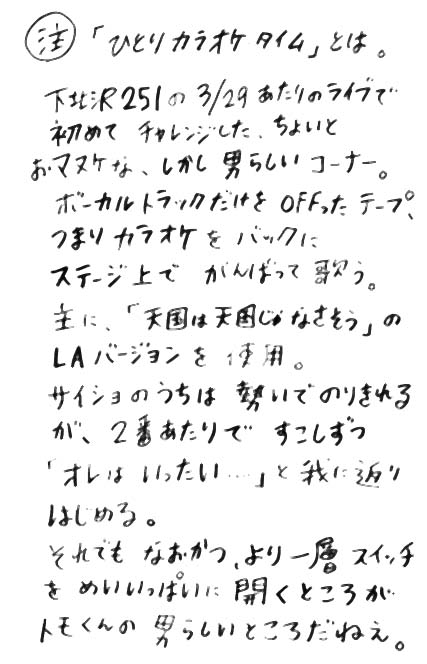 注 「ひとりカラオケタイム」とは。
下北沢251の3/29あたりのライブで
初めて チャレンジした、ちょいと
おマヌケな、しかし男らしいコーナー。
ボーカルトラックだけをOFFったテープ、
つまりカラオケをバックに
ステージ上で がんばって歌う。
主に、「天国は天国じゃなさそう」の
LAバージョンを使用。
サイショのうちは 勢いでのりきれる
が、2番あたりで すこしずつ
「オレは いったい…」と我に返り
はじめる。
それでも なおかつ、より一層スイッチ
を めいいっぱいに 開くところが
トモくんの 男らしいところだねえ。